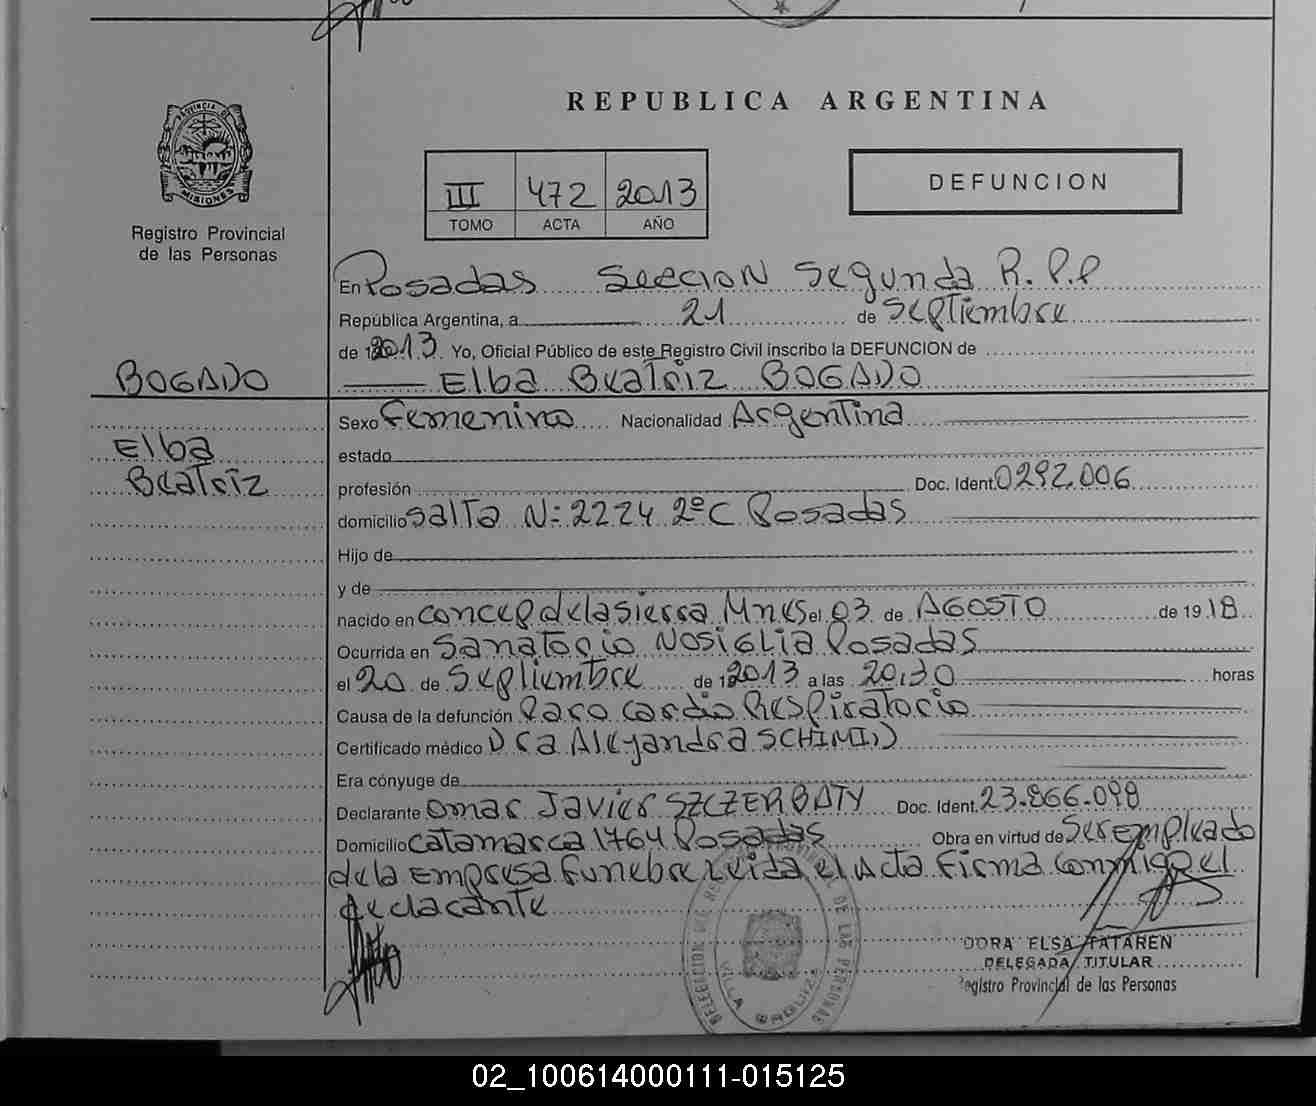 REPUBLICA ARGENTINA
PROVINCIA DE
MISIONES
Registro Provincial
de las Personas
III 472 2013
TOMO ACTA AÑO
DEFUNCION
En Posadas Seccion Segunda R.P.P
República Argentina, a 21 de Septiembre
de 2013. Yo, Oficial Público de este Registro Civil inscribo la DEFUNCION de
BOGADO
Elba Beatriz BOGADO
Sexo Femenino Nacionalidad Argentina
Elba
estado
Beatriz
profesión Doc. Ident. 0292.006
domicilio Salta N: 2224 2º C Posadas
Hijo de
y de
nacido en Concep de la Sierra Mnes el 03 de AGOSTO de 1918
Ocurrida en Sanatorio NOSIGLIA Posadas
el 20 de Septiembre de 2013 a las 20,30 horas
Causa de la defunción Paro Cardio Respiratorio
Certificado médico Dra Alejandra SCHIMID
Era cónyuge de
Declarante Omar Javier SZCZERBATY Doc. Ident. 23.866.098
Domicilio Catamarca 1764 Posadas Obra en virtud de Ser empleado
de la Empresa Funebre Leida el Acta Firma Conmigo el
declarante
DELEGACION DEL REGISTRO PROVINCIAL DE LAS PERSONAS
VILLA
DORA ELSA TATAREN
DELEGADA TITULAR
Registro Provincial de las Personas
02_100614000111-015125